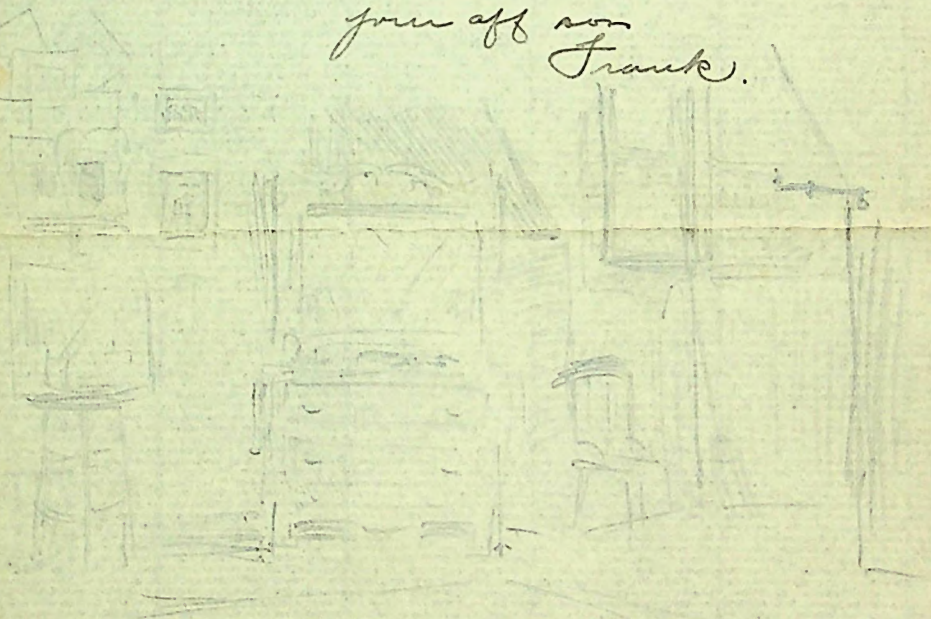 your aff son
Frank.